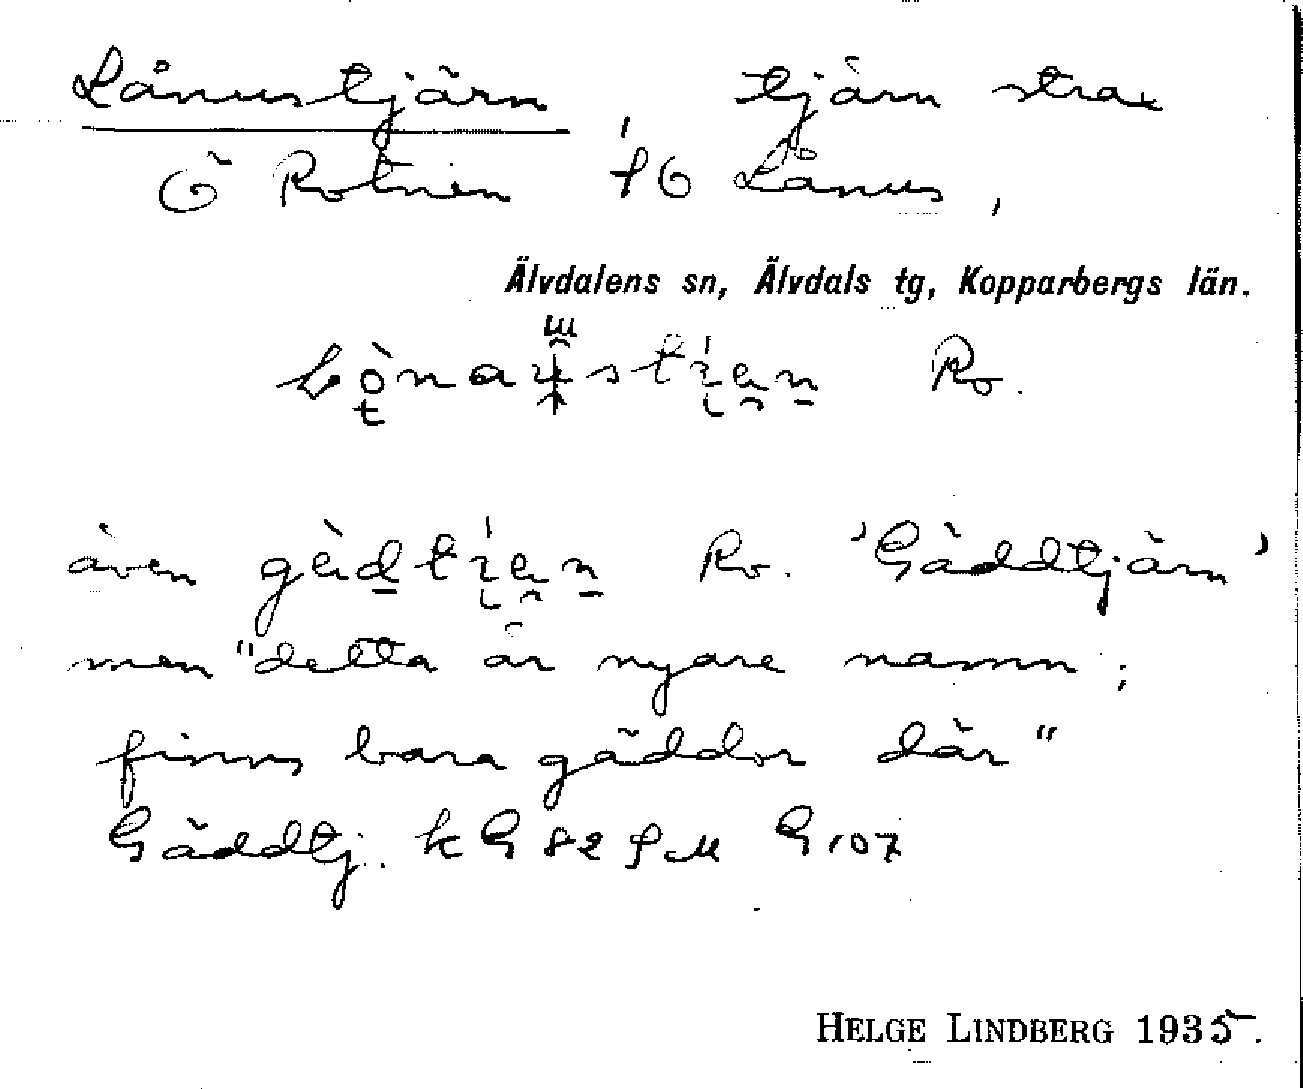 Lånustjärn, tjärn strax
Ö Rotnen fö Lånus,
Älvdalens sn, Älvdals tg, Kopparbergs län.
Ro.
även Ro. 'Gäddtjärn'
men "detta är nyare namn;
finns bara gäddor där"
Gäddtj. k G 82 G 107
HELGE LINDBERG 1935.